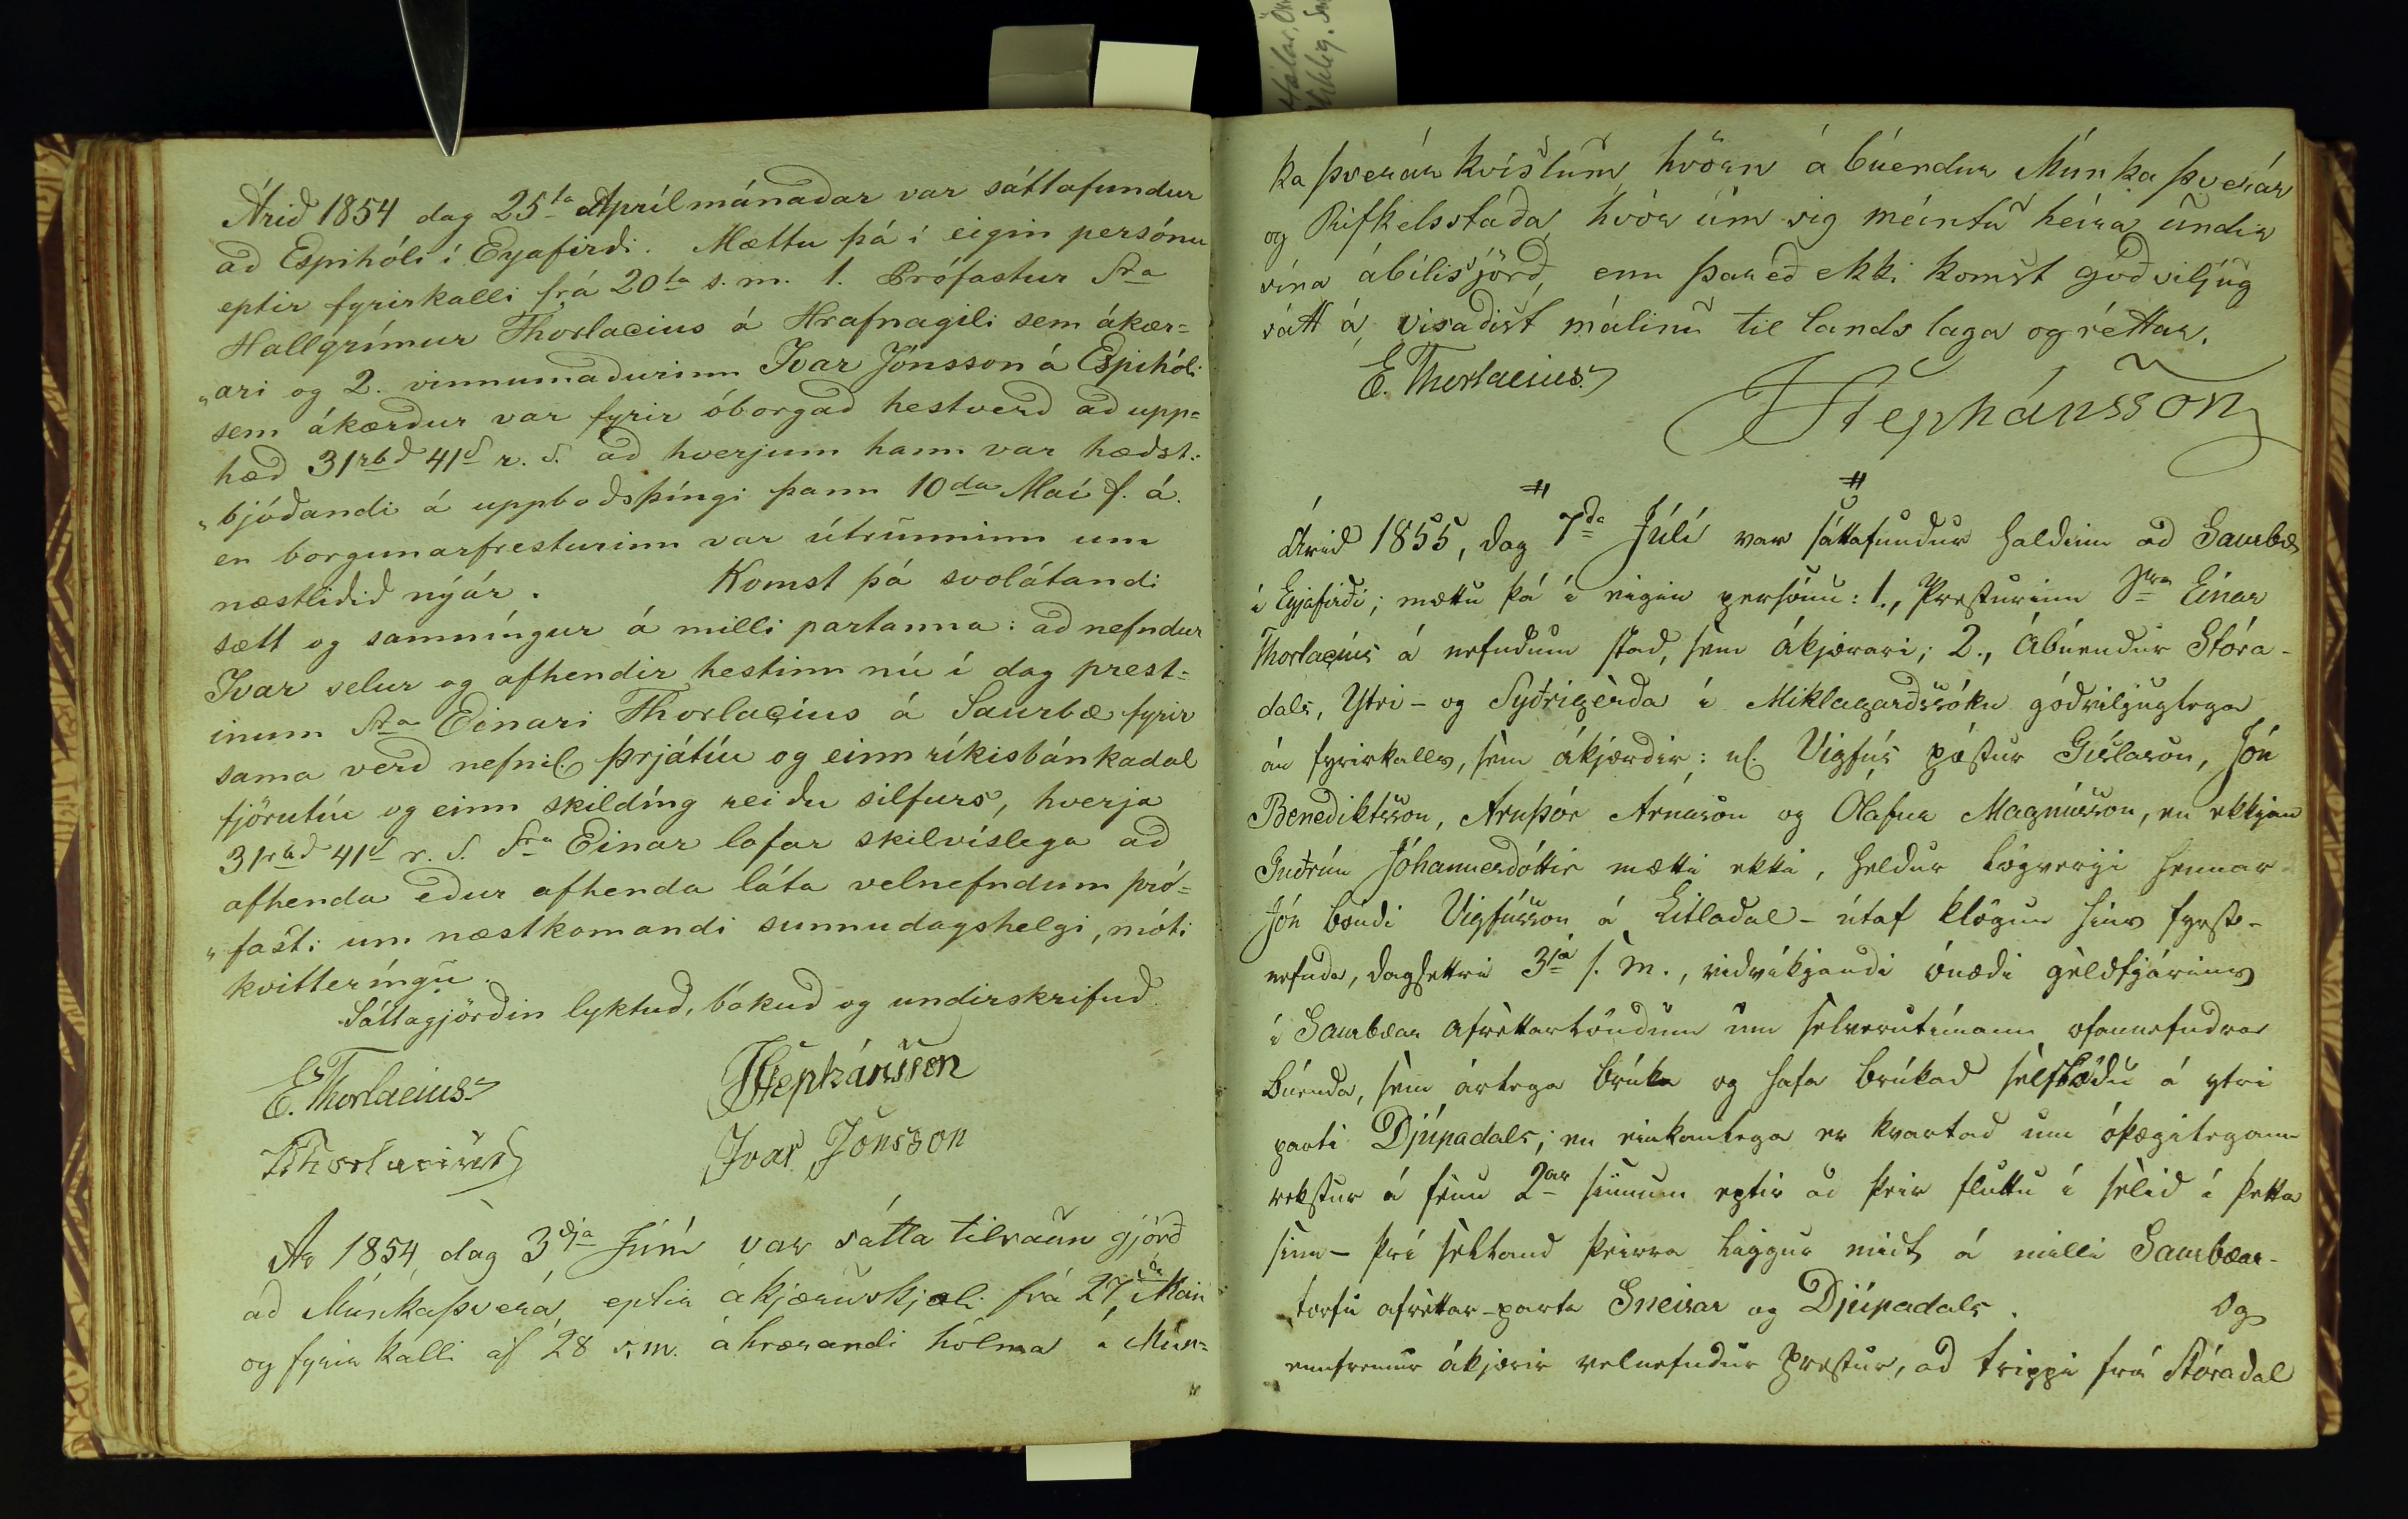 Árið 1854 dag 25ta Aprílmánaðar var sáttafundur
að Espihóli í Eyafirði. Mættu þá í eigin persónu
eptir fyrirkalli frá 20ta s. m. 1. Prófastur Sra
Hallgrímur Thorlacius á Hrafnagili sem ákær=
„ari og 2. vinnumaðurinn Ivar Jónsson á Espihóli
sem ákærður var fyrir óborgað hestverð að upp=
hæð 31rbd 41s r. S. að hverjum hann var hæðst=
„bjóðandi á uppboðsþíngi þann 10da Maí f. á.
en borgunarfresturinn var útrunninn um
næstliðið nýár. Komst þá svolátandi
sætt og samníngur á milli partanna: að nefndur
Ivar selur og afhendir hestinn nú í dag prest=
inum Sra Einari Thorlacius á Saurbæ fyrir
sama verð nefnil. þrjátíu og einn ríkisbánkadal
fjörutíu og einn skildíng reiðu silfurs, hverja
31rbd 41s r. S. Sra Einar lofar skilvíslega að
afhenda eður afhenda láta velnefndum pró=
„fasti um næstkomandi sunnudagshelgi, móti
kvitteríngu.
Sáttagjörðin lyktuð, bókuð og undirskrifuð
E. Thorlacius
JStephánsson
HThorlacius
Ivar Jónsson
Ár 1854 dag 3dja Júní var sátta tilraun gjörð
að Múnkaþverá eptir ákjæruskjali frá 27da Maii
og fyrirkalli af 28 s. m. áhrærandi hólma í Mún=
ka þverár kvíslum, hvörn ábúendur Múnka þverár
og Rifkelsstaða, hvör um sig meintu heira undir
sína ábílisjörð, enn þareð ekki komst góðviljug
sátt á, vísaðist málinu til lands laga og réttar.
E. Thorlacius
JStephánsson
Árið 1855, dag 7da Júlí var sáttafundur haldinn að Saurbæ
í Eyjafirði; mættu þá í eigin persónu: 1., Presturinn Sra Einar
Thorlacius á nefndum stað, sem ákjærari; 2., Ábúendur Stóra-
dals, Ytri- og Syðrigerða í Miklagarðssókn góðviljuglega
án fyrirkalls, sem ákjærðir: nl. Vigfús póstur Gíslason, Jón
Benediktsson, Arnþór Árnason og Olafur Magnússon, en ekkjan
Guðrún Jóhannesdóttir mætti ekki, heldur lögverji hennar
Jón bóndi Vigfússon á Litladal - útaf klögun hins fyrst-
nefnda, dagsettri 3ja s. m., viðvíkjandi ónæði geldfjárins
í Saurbæar afréttarlöndum um selverutímann ofannefndra
búenda, sem árlega brúka og hafa brúkað selstöðu á ytri
parti Djúpadals; en einkanlega er kvartað um óþægilegann
rekstur á fénu 2ar sinnum eptir að þeir fluttu í selið í þetta
sinn - því selland þeirra liggur midt á milli Saurbæar-
torfu afréttar-parta Sneisar og Djúpadals. Og
ennfremur ákjærir velnefndur prestur, að trippi frá Stóradal